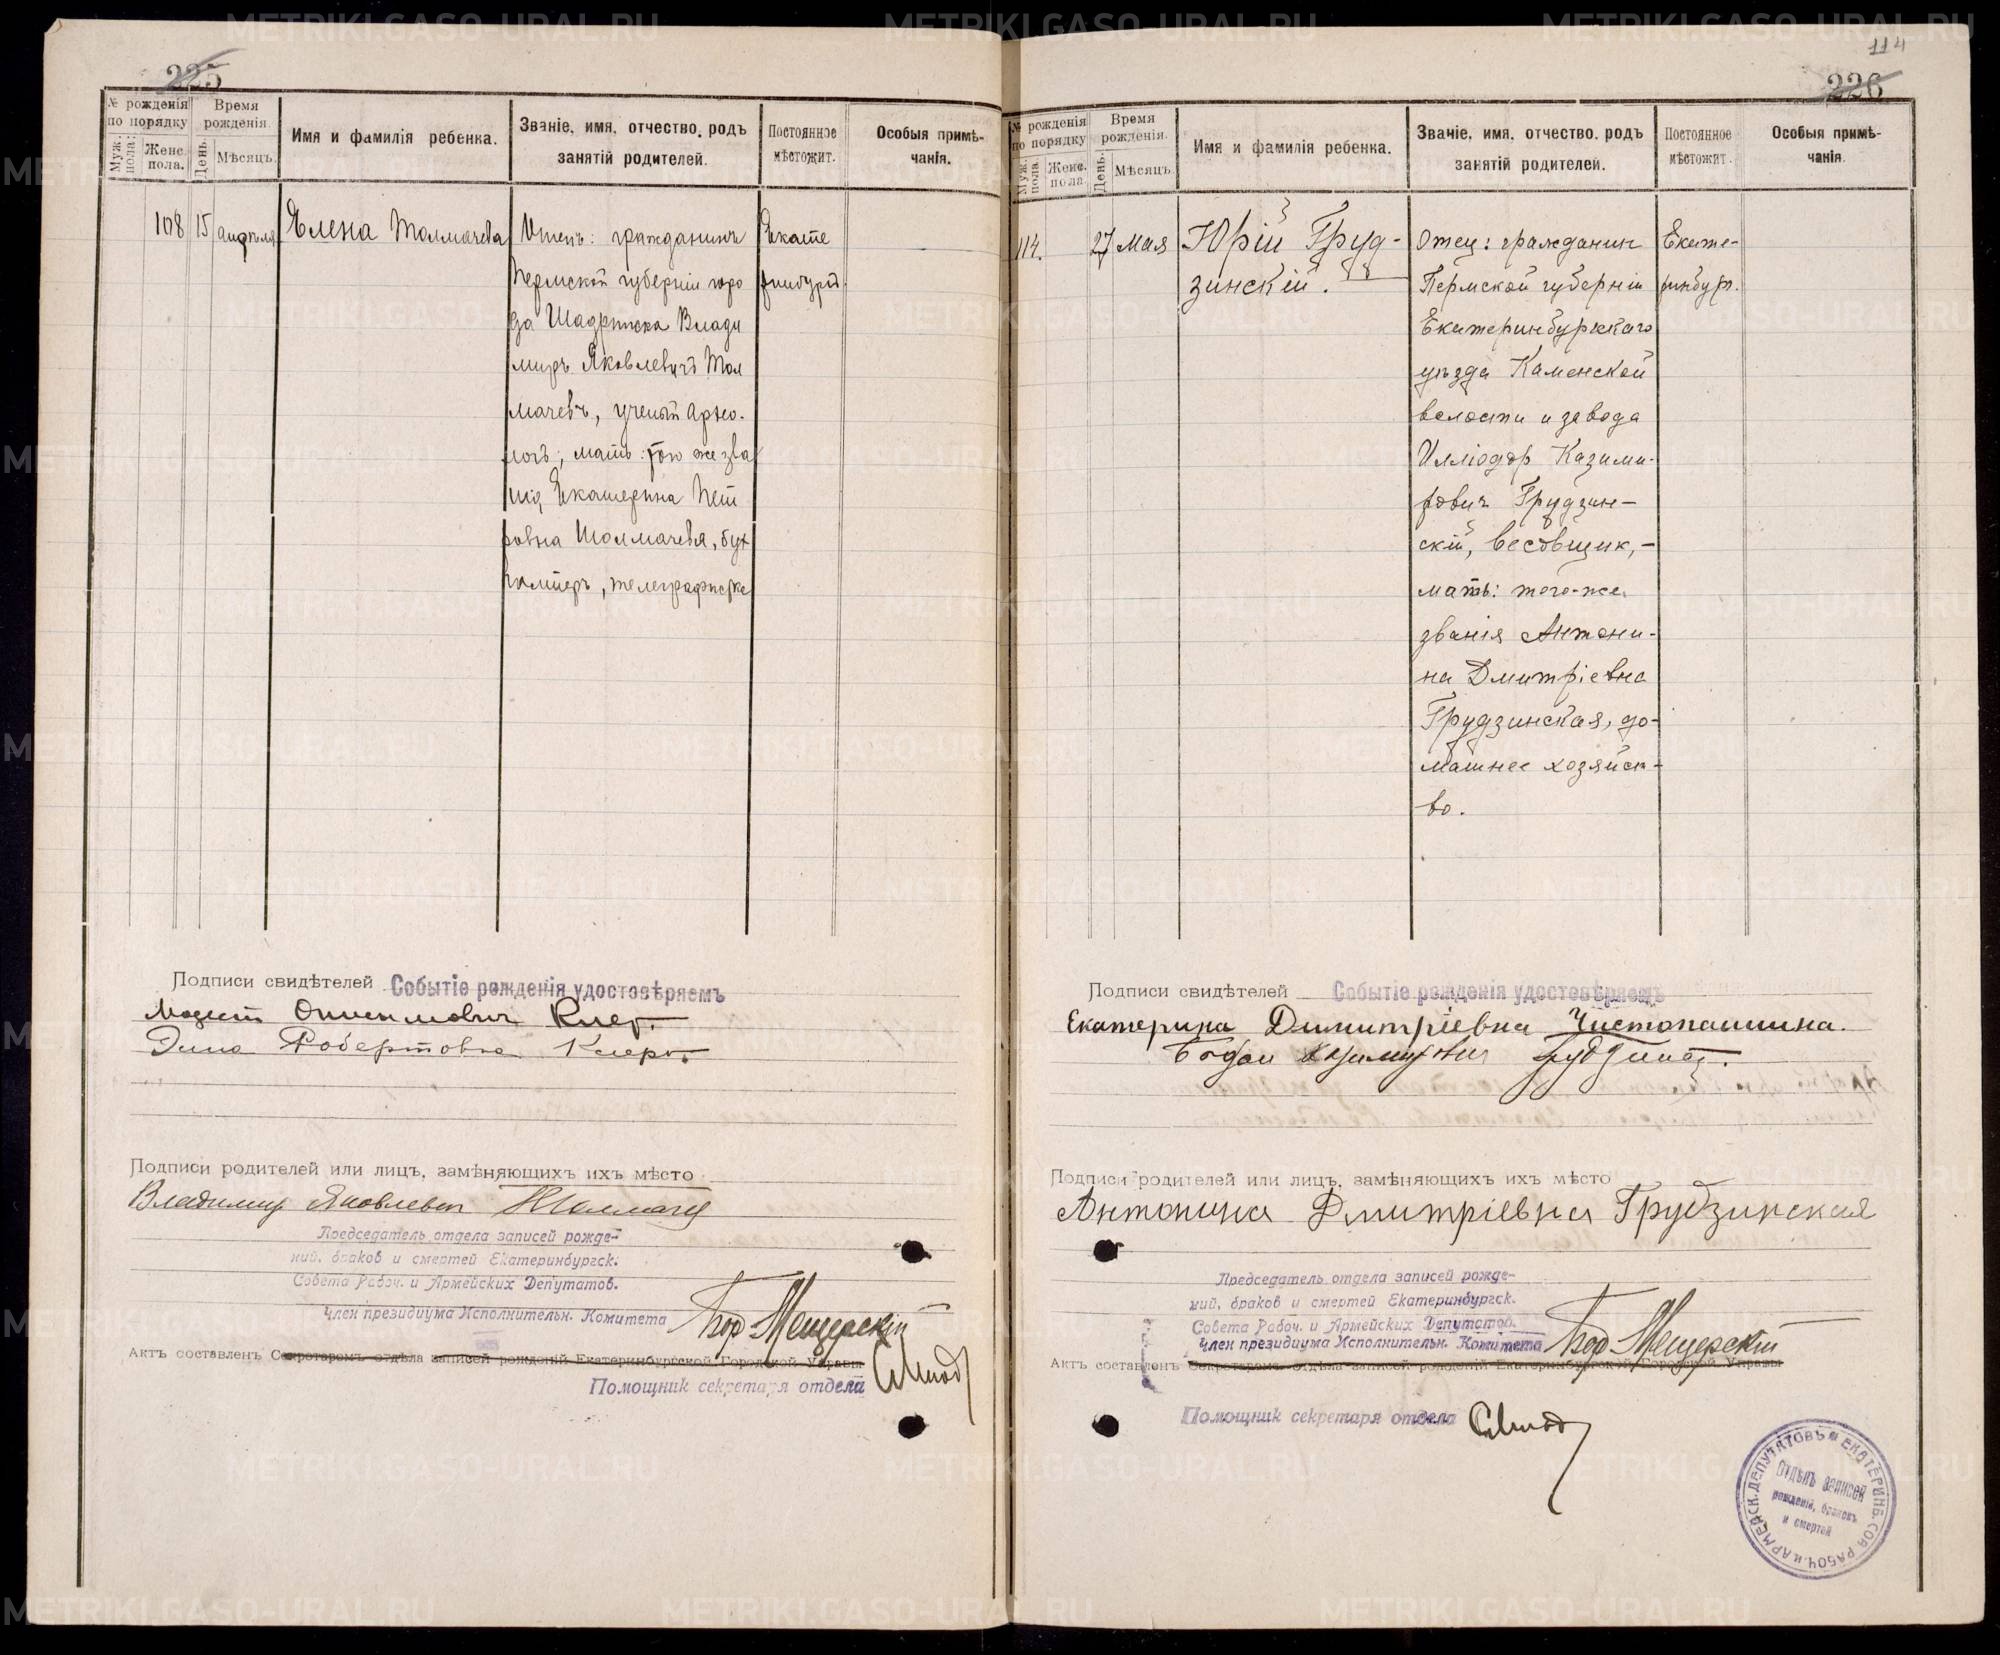 225
№ рожденія по порядку
Муж. пола.
Женс. пола.
Время рожденія.
День.
Мѣсяцъ.
Имя и фамилія ребенка.
Званіе, имя, отчество, родъ занятій родителей.
Постоянное мѣстожит.
Особыя примѣчанія.
108
15
апрѣля
Елена Толмачева
Отецъ: гражданинъ
Пермской губерніи горо
да Шадринска Влади
миръ Яковлевичъ Тол
мачевъ, ученый архео.
логъ; мать: того же зва
нія, Екатерина Пет
ровна Толмачева, бух
галтеръ, телеграфистка
Екате
ринбургъ.
Подписи свидѣтелей Событіе рожденія удостовѣряемъ
Модест Онисимович Клер.
Элла Робертовна Клеръ.
Подписи родителей или лицъ, замѣняющихъ ихъ мѣсто
Владимир Яковлевич Толмачев
Председатель отдела записей рожде-
ний, браков и смертей Екатеринбургск.
Совета Рабоч. и Армейских Депутатов.
Член президиума Исполнительн. Комитета
Мещерскій
Актъ составленъ Секретаромъ отдѣла записей рожденій Екатеринбургской Городской Управы
Помощник секретаря отдела
114
226
№ рожденія по порядку
Муж. пола.
Женс. пола
Время рожденія.
День.
Мѣсяцъ.
Имя и фамилія ребенка.
Званіе, имя, отчество, родъ занятій родителей.
Постоянное мѣстожит.
Особыя примѣчанія.
114.
27
мая
Юрій Груд-
зинскій.
Отец: гражданин
Пермской губерніи
Екатеринбургскаго
уѣзда Каменской
волости и завода
Илліодор Казими-
рович Грудзин-
скій, весовщик, -
мать: того-же
званія Антони-
на Дмитріевна
Грудзинская, до-
машнее хозяйст-
во.
Екате-
ринбург.
Подписи свидѣтелей Событіе рожденія удостовѣряемъ
Екатерина Димитріевна Чистопашина.
Подписи родителей или лицъ, замѣняющихъ ихъ мѣсто
Антонина Дмитріевна Грудзинская
Председатель отдела записей рожде-
ний, браков и смертей Екатеринбургск.
Совета Рабоч. и Армейских Депутатов.
Член президиума Исполнительн. Комитета
Мещерскій
Актъ составленъ Секретаромъ отдѣла записей рожденій Екатеринбургской Городской Управы
Помощник секретаря отдела
ЕКАТЕРИНБ. СОВ. РАБОЧ. И АРМЕЙСК. ДЕПУТАТОВЪ
Отдѣлъ записей
рожденій, браковъ
и смертей
METRIKI.GASO-URAL.RU